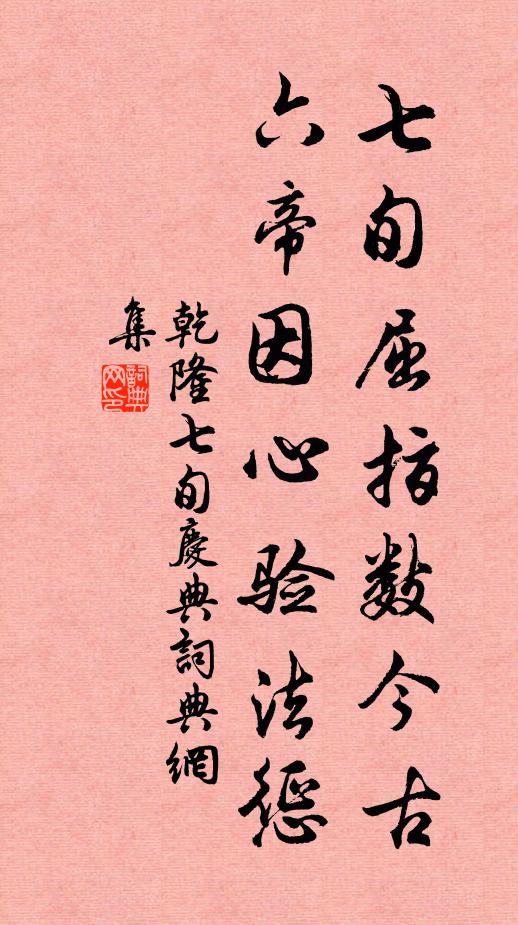 七旬屈指数今古
六帝因心验法惩
乾隆七旬慶典詞典網
集
詞典網印